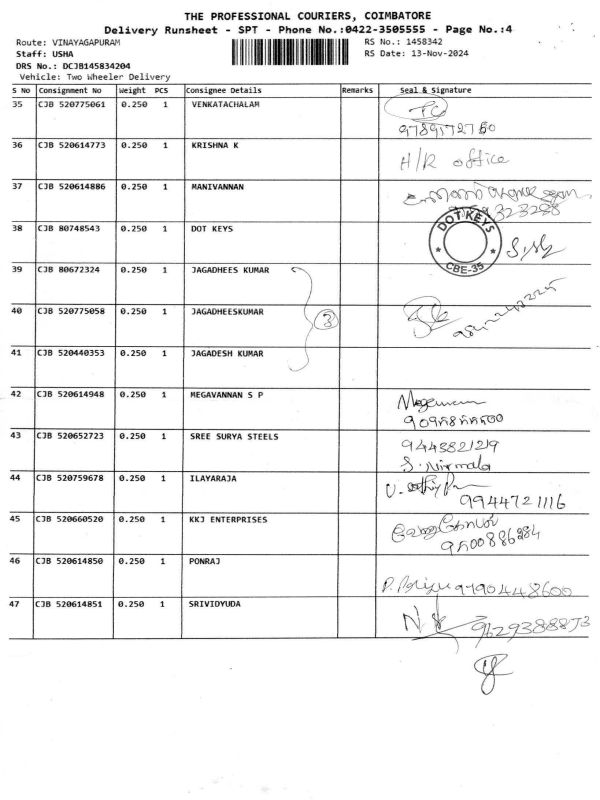 THE PROFESSIONAL COURIERS, COIMBATORE
Delivery Runsheet - SPT - Phone No.:0422-3505555 - Page No.:4
Route: VINAYAGAPURAM RS No.: 1458342
Staff: USHA RS Date: 13-Nov-2024
DRS No.: DCJB145834204
Vehicle: Two Wheeler Delivery
S No Consignment No Weight PCS Consignee Details Remarks Seal & Signature
35 CJB 520775061 0.250 1 VENKATACHALAM
36 CJB 520614773 0.250 1 KRISHNA K H/R office
37 CJB 520614886 0.250 1 MANIVANNAN
38 CJB 80748543 0.250 1 DOT KEYS DOT KEYS CBE-35
39 CJB 80672324 0.250 1 JAGADHEES KUMAR
40 CJB 520775058 0.250 1 JAGADHEESKUMAR 3
41 CJB 520440353 0.250 1 JAGADESH KUMAR
42 CJB 520614948 0.250 1 MEGAVANNAN S P
43 CJB 520652723 0.250 1 SREE SURYA STEELS 9443821219
S. Nirmala
44 CJB 520759678 0.250 1 ILAYARAJA
9944721116
45 CJB 520660520 0.250 1 KKJ ENTERPRISES
46 CJB 520614850 0.250 1 PONRAJ
47 CJB 520614851 0.250 1 SRIVIDYUDA